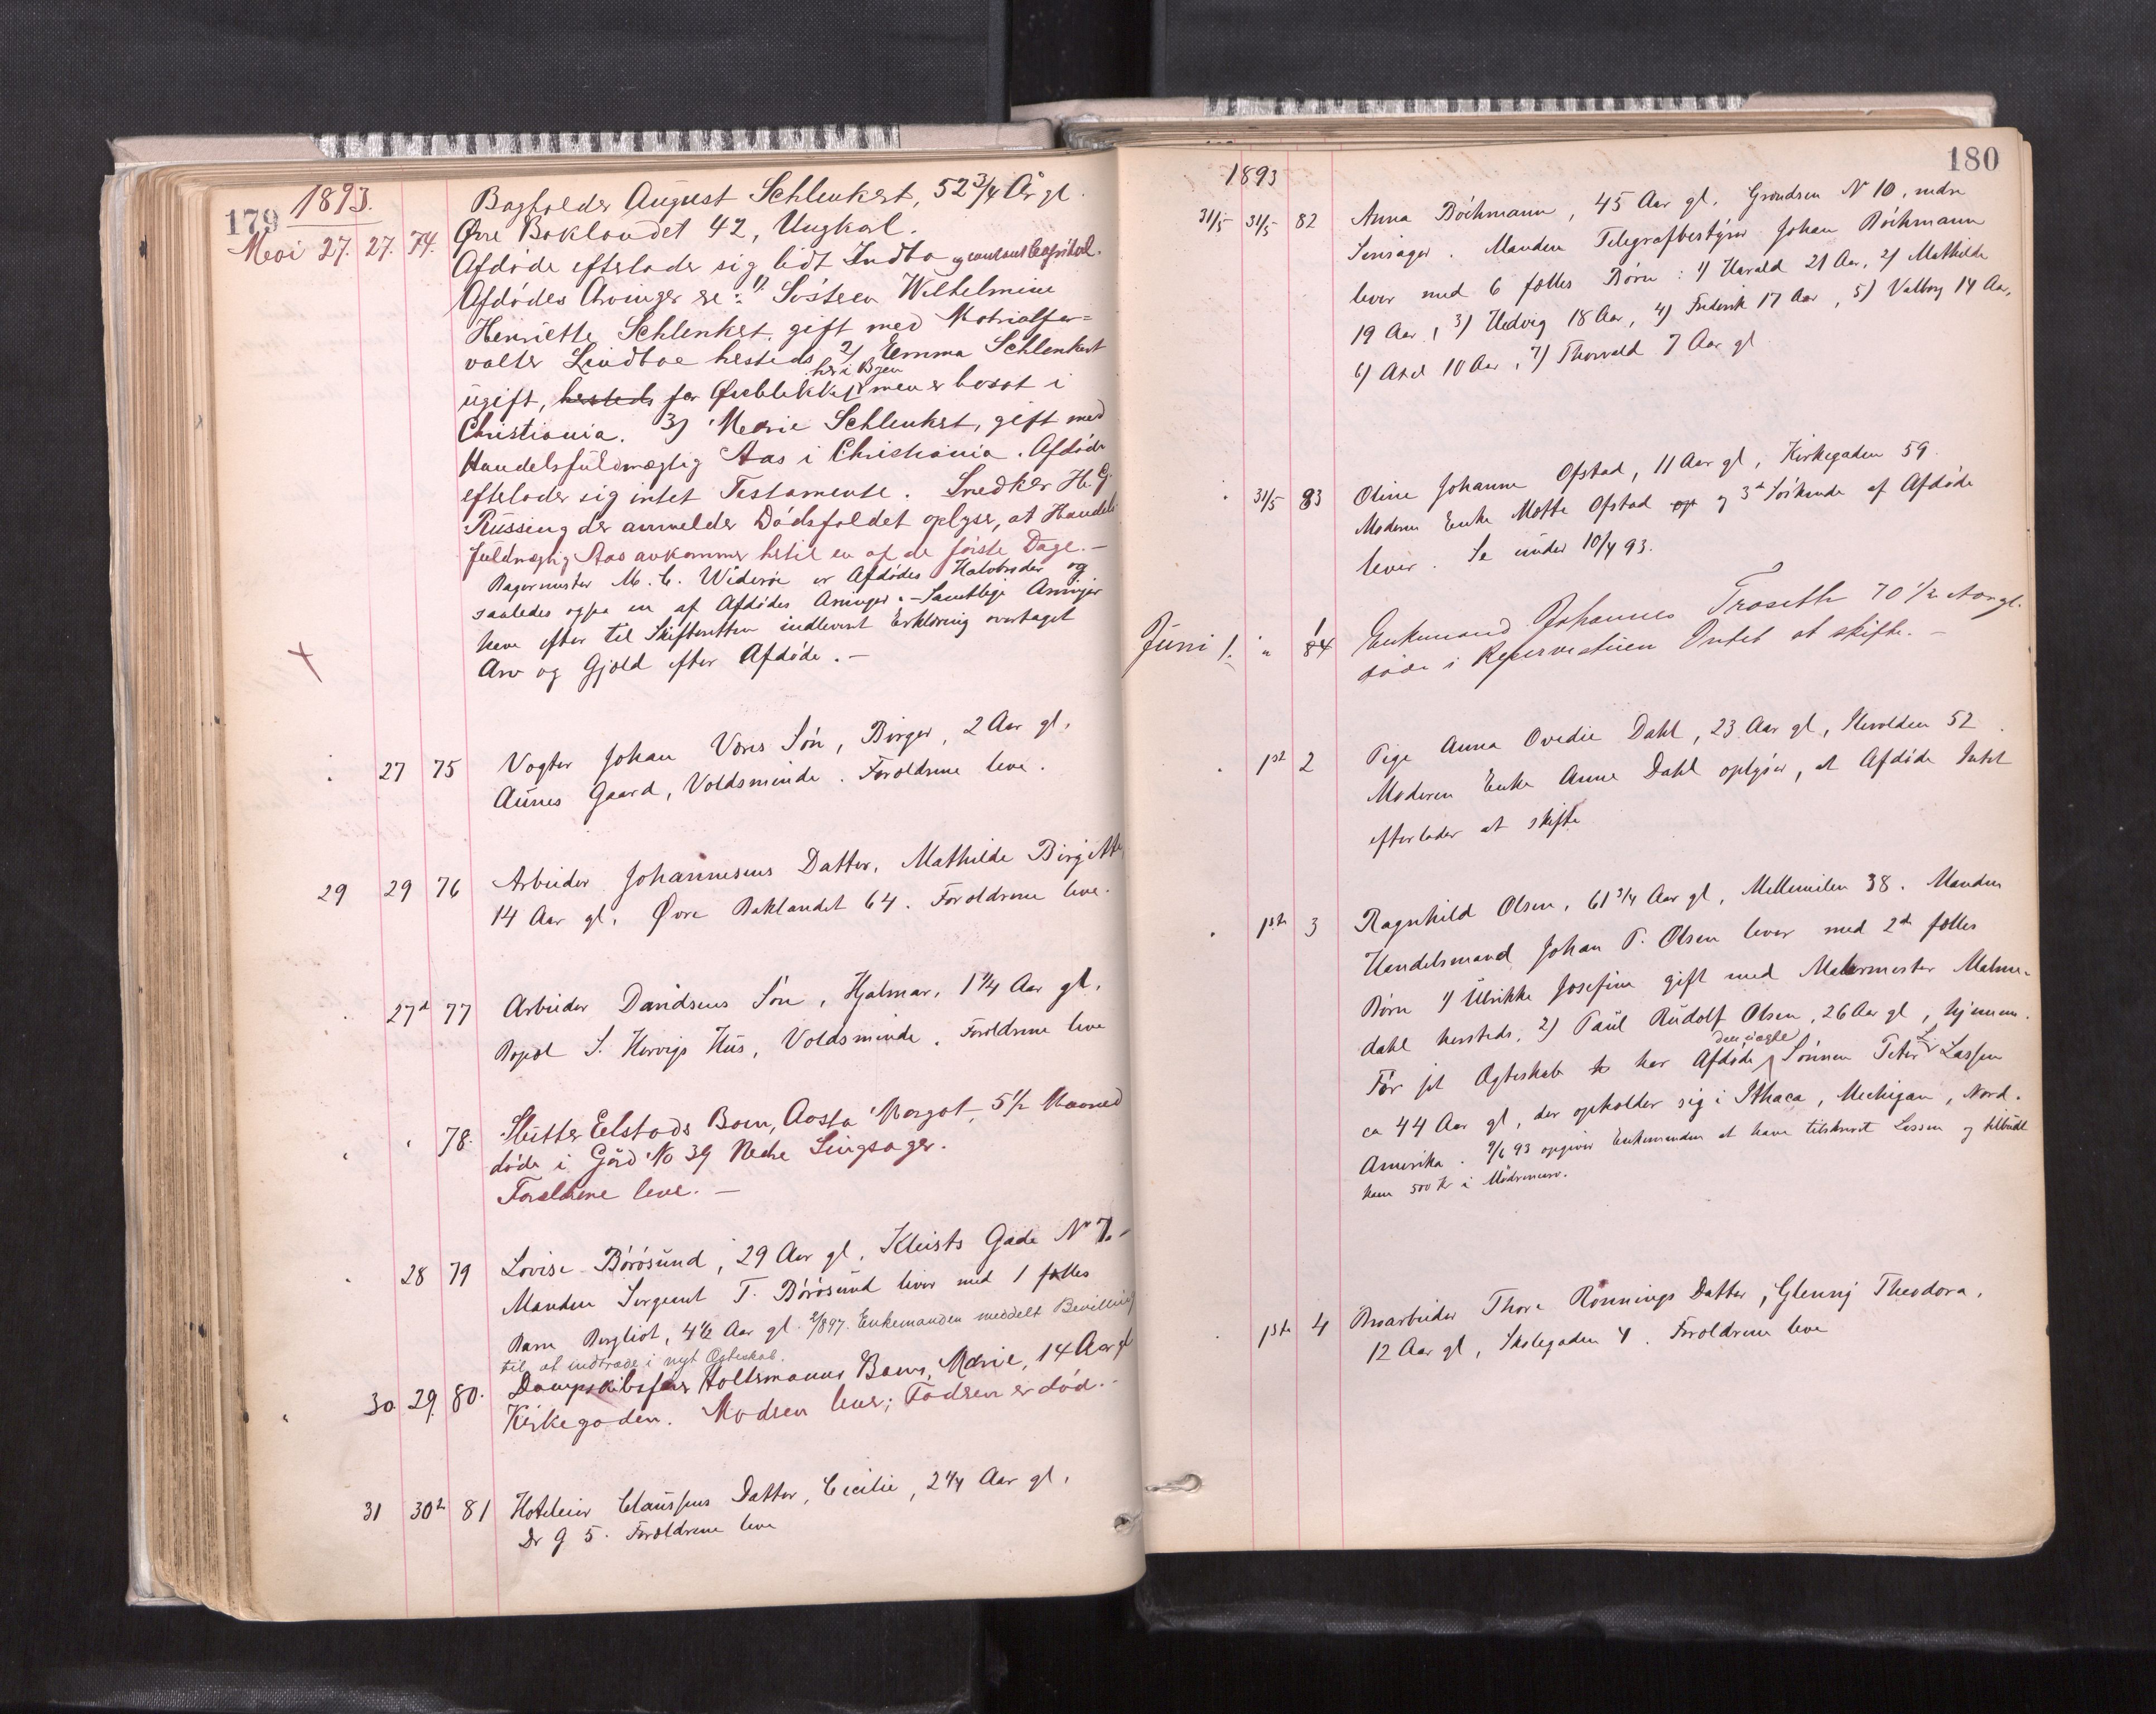 179
1893.
Mai 27. 27. 74. Bogholder August Schlenkert, 52 3/4 År gl.
Øvre Baklandet 42, Ungkarl.
Afdøde efterlader sig lidt Indbo og contant Capital.
Afdødes Arvinger ere: 1) Søsteren Wilhelmine
Henriette Schlenkert, gift med Matrialfor=
valter Lindboe hersteds 2) Emma Schlenkert
her i Byen
ugift, hersteds for Øieblikket men er bosat i
Christiania. 3) Marie Schlenkert, gift med
Handelsfuldmægtig Aas i Christiania. Afdøde
efterlader sig intet Testamente. Snedker H. G.
Rüssing der anmelder Dødsfaldet oplyser, at Handels
fuldmægtig Aas ankommer hertil en af de første Dage. —
Bagermester M. C. Widerøe er Afdødes Halvbroder og
saaledes ogsaa en af Afdødes Arvinger. — Samtlige Arvinger
have efter til Skifteretten indleveret Erklæring overtaget
Arv og Gjæld efter Afdøde. —
27 75 Vogter Johan Væres Søn, Birger, 2 Aar gl,
Aunes Gaard, Voldsminde. Forældrene leve.
29 29 76 Arbeider Johannesens Datter, Mathilde Birgitte,
14 Aar gl, Øvre Baklandet 64. Forældrene leve.
27d 77 Arbeider Davidsens Søn, Hjalmar, 1 1/4 Aar gl,
S. Hervigs Hus, Voldsminde, Forældrene leve
78. Slutter Eelstads Barn, Aasta Margot, 5 1/2 Maaned
døde i Gård No 39 Nedre Singsager.
Forældrene leve. —
28 79 Lovise Börösund, 29 Aar gl, Kleists Gade No 7. —
Manden Sergeant T. Börösund lever med 1 fælles
Barn Bergliot, 4 1/2 Aar gl. 2/8 97. Enkemanden meddelt Bevilling
til at indtræde i nyt Ægteskab.
30 29. 80. Dampskibsfører Holtermanns Barn, Marie, 14 Aar gl
Kirkegaden. Modren lever; Fadren er død. —
31 30te 81 Hoteleier Claussens Datter, Cecilie, 2 1/4 Aar gl,
Dr G 5. Forældrene leve
180
1893
31/5 31/5 82 Anna Böckmann, 45 Aar gl, Grændsen No 10, nedre
Sinsager. Manden Telegrafbestyrer Johan Böckmann
lever med 6 fælles Børn: 1) Harald 21 Aar, 2) Mathilde
19 Aar, 3) Hedvig 18 Aar, 4) Frederik 17 Aar, 5) Valborg 14 Aar,
6) Axel 10 Aar, 7) Thorvald 7 Aar gl
31/5 83 Oline Johanne Ofstad, 11 Aar gl, Kirkegaden 59.
Moderen Enke Motte Ofstad op og 3de Søskende af Afdøde
lever. Se under 10/4 93.
Juni 1. " 84 1 Enkemand Johannes Traseth 70 1/2 Aar gl.
døde i Reservestuen Intet at skifte. —
1ste 2 Pige Anna Ovedie Dahl, 23 Aar gl, Ilevolden 52.
Moderen Enke Anne Dahl oplyser, at Afdøde Intet
efterlader at skifte
1ste 3 Ragnhild Olsen, 61 3/4 Aar gl, Mellemilen 38. Manden
Handelsmand Johan P. Olsen lever med 2de fælles
Børn 1) Ulrikke Josefine gift med Malermester Malme-
dahl hersteds, 2) Paul Rudolf Olsen, 26 Aar gl, hjemme.
den uægte
Før sit Ægteskab har Afdøde Sønnen Peter L. Lassen
ca 44 Aar gl, der opholder sig i Ithaca, Mechigan, Nord.
Amerika. 9/6 93 opgiver Enkemanden at have tilskrevet Lassen og tilbudt
ham 500 Kr i Mødrenearv.
1ste 4 Broarbeider Thore Rønnings Datter, Glenny Theodora,
12 Aar gl, Skolegaden 4. Forældrene leve